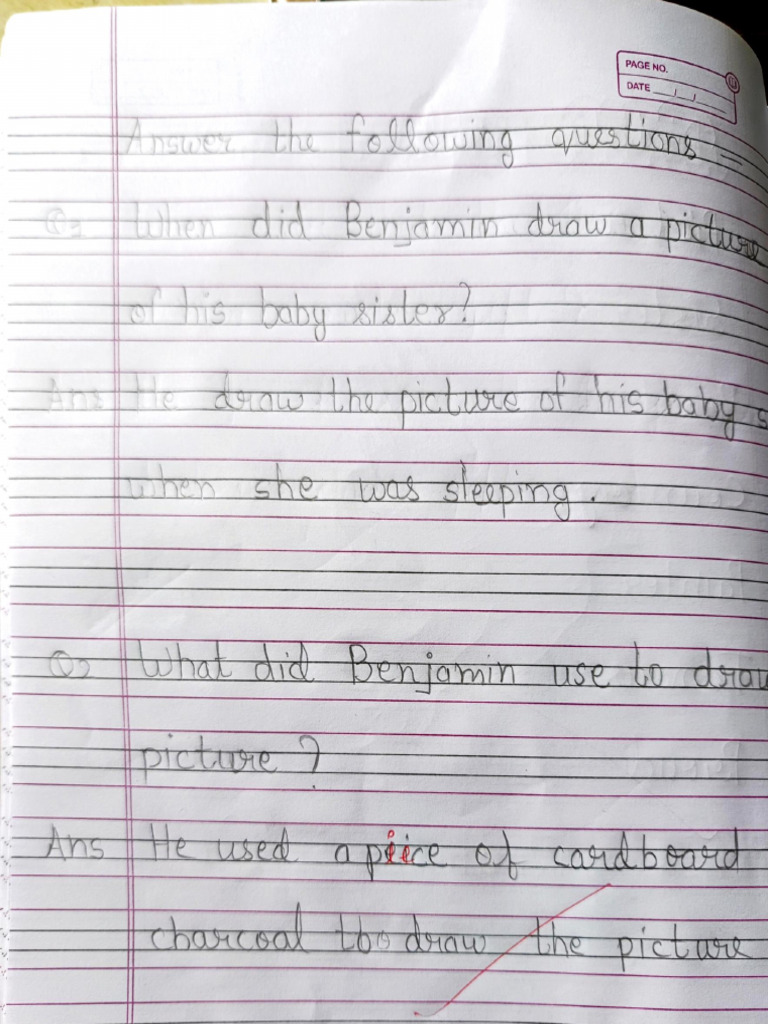 PAGE NO.
DATE
Answer the following questions =
Q1 When did Benjamin draw a picture
of his baby sister?
Ans He draw the picture of his baby s
when she was sleeping.
Q2 What did Benjamin use to draw
picture ?
Ans He used a piece of cardboard
charcoal to draw the picture